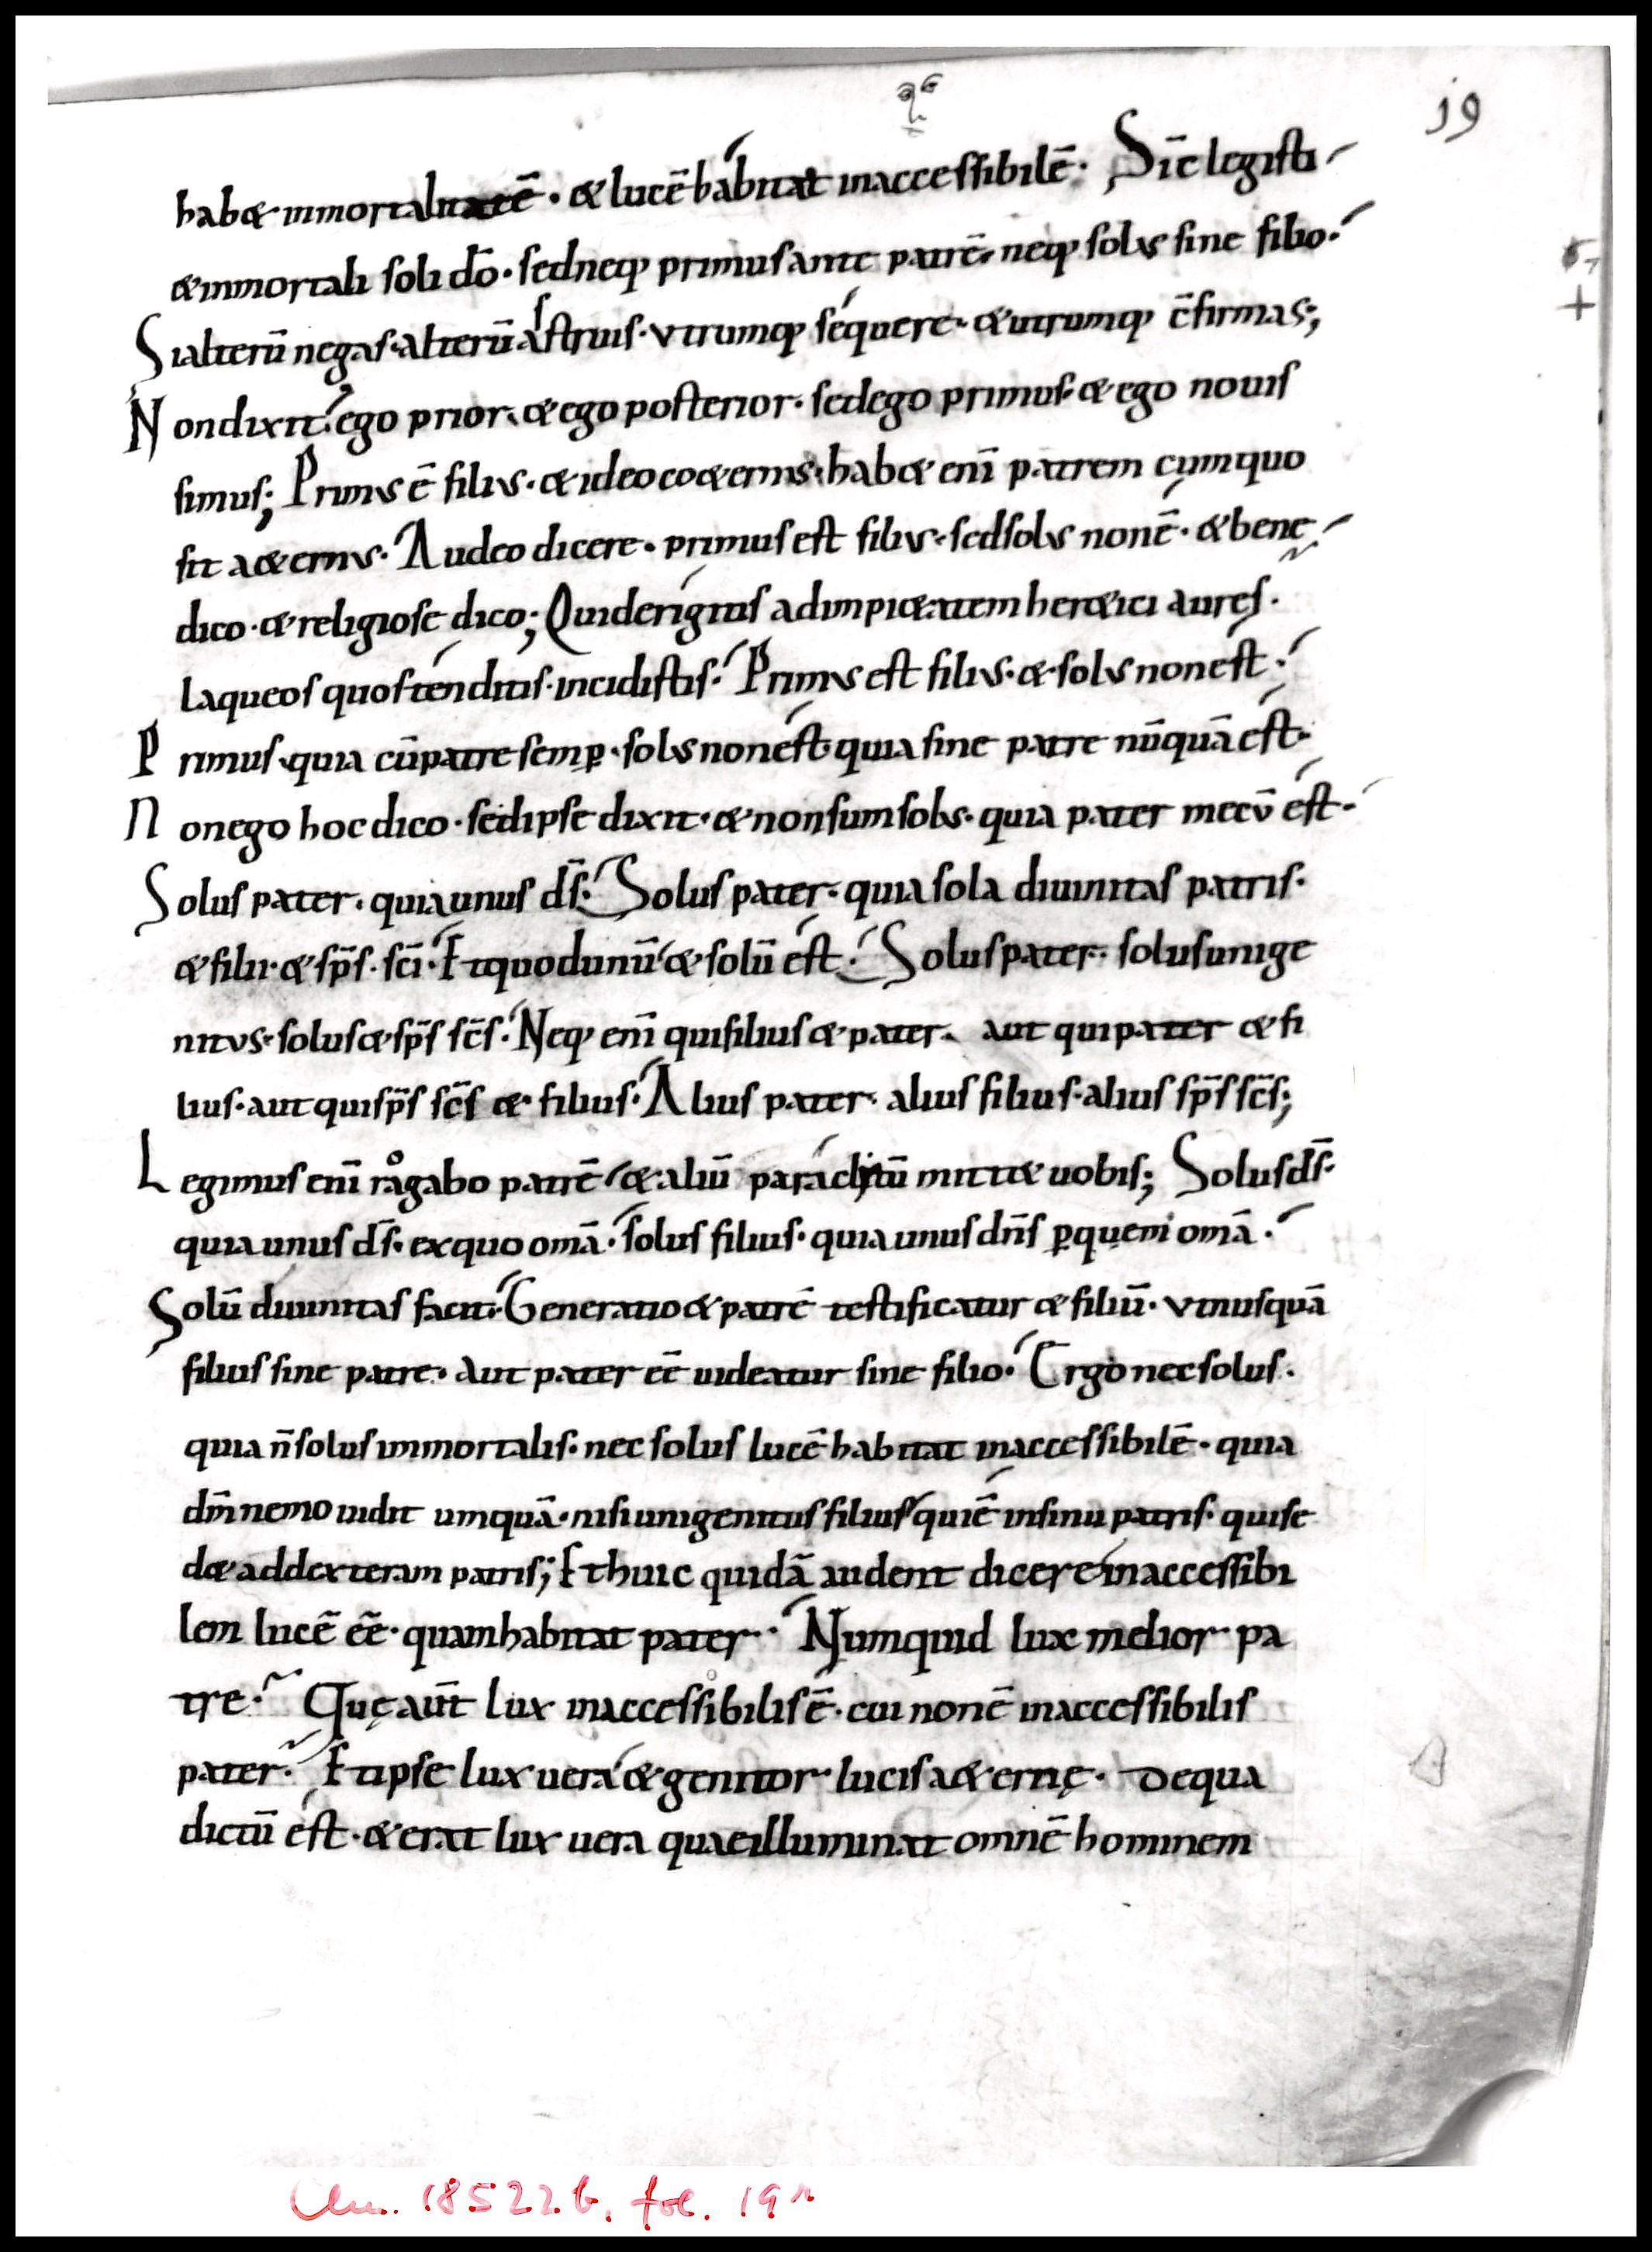 19
habet inmortalitatē · & lucē habitat inaccessibilē · Sic̄ legisti
& inmortali soli dō · sed neq; primus ante patrē · neq; solus sine filio ·
Si alterū negas · alterū astruis · utrumq; sequere · & utrumq; c̄firmas ;
Non dixit · ego prior · & ego posterior · sed ego primus · & ego nouis
simus ; Primus ē filius · & ideo coaeternus · habet enī patrem cum quo
sit aeternus · Audeo dicere · primus est filius · sed solus non ē · & bene
dico · & religiose dico ; Quid erigitis ad impietatem heretici aures ·
Laqueos quos tenditis · incidistis · Primus est filius · & solus non est ·
Primus · quia cū patre semꝑ · solus non est · quia sine patre nūquā est ·
Non ego hoc dico · sed ipse dixit · & non sum solus · quia pater mecū est ·
Solus pater · quia unus ds̄ · Solus pater · quia sola diuinitas patris ·
& filii · & sp̄s · sc̄i · Et quod unū & solū est · Solus pater · solus unige
nitus · solus & sp̄s sc̄s · Neq; enī qui filius & pater · aut qui pater & fi
lius · aut qui sp̄s sc̄s & filius · Alius pater · alius filius · alius sp̄s sc̄s ;
Legimus enī rogabo patrē & aliū paraclitū mittet uobis ; Solus ds̄ ·
quia unus ds̄ · ex quo om̄a · solus filius · quia unus dn̄s ꝑ quem om̄a ·
Solū diuinitas facit · Generatio & patrē testificatur & filiū · ut nusquā
filius sine patre · aut pater eē uideatur sine filio · Ergo nec solus ·
quia n̄ solus immortalis · nec solus lucē habitat inaccessibilē · quia
dm̄ nemo uidit umquā · nisi unigenitus filius qui ē in sinu patris · qui se
det ad dexteram patris ; Et huic quidā audent dicere inaccessibi
lem lucē eē · quam habitat pater · Numquid lux melior pa
tre · Quę aūt lux inaccessibilis ē · cui non ē inaccessibilis
pater · Et ipse lux uera & genitor lucis aeternę · De qua
dictū est · & erat lux uera quae illuminat omnē hominem
Clm. 18522b, fol. 19r